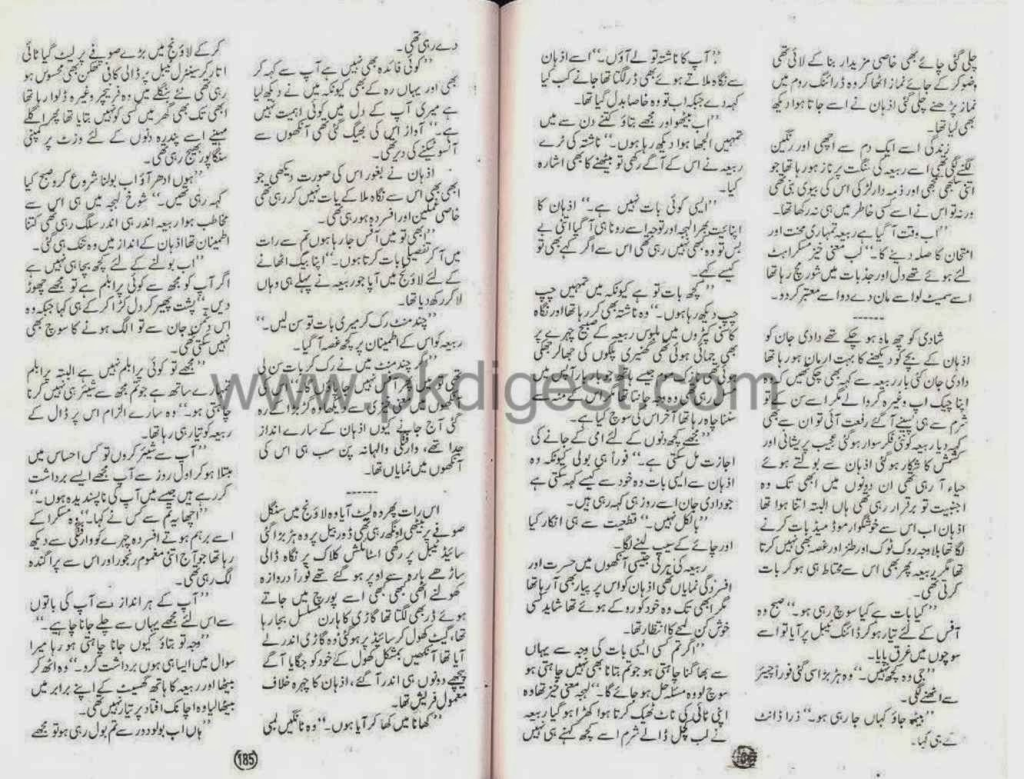 چلی گئی چائے بھی خاصی مزیدار بنا کے لائی تھی
وضو کر کے جائے نماز اٹھا کر وہ ڈرائنگ روم میں
نماز پڑھنے چلی گئی اذہان نے اسے جاتا ہوا دیکھ
بھی لیا تھا۔
زندگی اسے ایک دم سے اچھی اور رنگین
لگنے لگی تھی اسے ربیعہ کی سنگت پر ناز ہو رہا تھا جو
اتنی سلجھی ہوئی اور ذمہ دار لڑکی اس کی بیوی بنی تھی
ورنہ تو اس نے اسے کسی خاطر میں ہی نہ رکھا تھا۔
”اب وقت آ گیا ہے ربیعہ تمہاری محبت اور
امتحان کا صلہ دینے کا۔“ لب معنی خیز مسکراہٹ
لئے ہوئے تھے دل اور جذبات میں شور مچ رہا تھا
اسے سمیٹ لو اسے مان دے دو اسے معتبر کر دو۔
------
شادی کو چھ ماہ ہو چکے تھے دادی جان کو
اذہان کے بچے کو دیکھنے کا بہت ارمان ہو رہا تھا
دادی جان کئی بار ربیعہ سے کہہ بھی چکی تھیں کہ وہ
اپنا چیک اپ وغیرہ کروا لے مگر اسے سن کے تو
شرم سے ہی پسینے آ گئے رفعت آئی تو ان سے بھی
کہہ دیا ربیعہ کو نئی فکر سوار ہو گئی عجیب پریشانی اور
کشمکش کا شکار ہو گئی اذہان سے بولتے ہوئے
حیاء آ رہی تھی ان دونوں میں ابھی تک وہ
اجنبیت تو برقرار رہی تھی ہاں البتہ اتنا ہوا تھا
اذہان اب اس سے خوشگوار موڈ میں بات کرنے
لگا تھا بلاوجہ روک ٹوک اور طنز اور غصہ بھی نہیں کرتا
تھا مگر ربیعہ پھر بھی اس سے محتاط ہی ہو کر بات
کرتی تھی۔
”کیا بات ہے کیا سوچ رہی ہو۔“ صبح وہ
آفس کے لئے تیار ہو کر ڈائننگ ٹیبل پر آیا تو اسے
سوچوں میں غرق پایا۔
”جی وہ کچھ نہیں۔“ وہ ہڑبڑا سی گئی فوراً چیئر
سے اٹھنے لگی۔
”بیٹھ جاؤ کہاں جا رہی ہو۔“ ذرا ڈانٹ
کے ہی کہا۔
”آپ کا ناشتہ تو لے آؤں۔“ اسے اذہان
سے نگاہ ملاتے ہوئے بھی ڈر لگتا تھا جانے کب کیا
کہہ دے جبکہ اب تو وہ خاصا بدل گیا تھا۔
”اب بیٹھو اور مجھے بتاؤ کتنے دن سے میں
تمہیں الجھا ہوا دیکھ رہا ہوں۔“ ناشتہ کی ٹرے
ربیعہ نے اس کے آگے رکھی تو بیٹھنے کا بھی اشارہ
کیا۔
”ایسی کوئی بات نہیں ہے۔“ اذہان کا
اپنائیت بھرا لہجہ اور توجہ اسے رونا ہی آ گیا اتنی بے
بس تو وہ کبھی نہیں رہی تھی اس سے اگر کہے بھی تو
کیسے کہے۔
”کچھ بات تو ہے کیونکہ میں تمہیں چپ
چپ دیکھ رہا ہوں۔“ وہ ناشتہ بھی کر رہا تھا اور نگاہ
کاسنی کپڑوں میں ملبوس ربیعہ کے صبیح چہرے پر
بھی جمائی ہوئی تھی گھنیری پلکوں کی جھالر جھکی
سننا چاہ رہا تھا آخر اس کی سوچ کیا ہے۔
”مجھے کچھ دنوں کے لئے امی کے جانے کی
اجازت مل سکتی ہے۔“ فوراً ہی بولی کیونکہ وہ
اذہان سے ایسی بات وہ خود سے کیسے کہہ سکتی ہے
جو دادی جان اسے روز ہی کہہ رہی ہیں۔
”بالکل نہیں۔“ قطعیت سے ہی انکار کیا
اور چائے کے سیپ لینے لگا۔
ربیعہ کی ہرنی جیسی آنکھوں میں حسرت اور
افسردگی نمایاں تھی اذہان کو اس پر پیار بھی آ رہا تھا
مگر ابھی تک وہ خود کو روکے ہوئے تھا شاید کسی
خوش کن لمحے کا انتظار تھا۔
”اگر تم کسی ایسی بات کی وجہ سے یہاں
سے بھاگنا چاہتی ہو جو تم بتانا بھی نہیں چاہتی ہو
سوچ لو وہ مسئلہ حل ہو جائے گا۔“ لہجہ معنی خیز تھا وہ
اپنی ٹائی کی ناٹ ٹھیک کرتا ہوا کھڑا ہو گیا ربیعہ
نے لب کچل ڈالے شرم اسے کچھ کہنے ہی نہیں
دے رہی تھی۔
”کوئی فائدہ بھی نہیں ہے آپ سے کہہ کر
بھی اور یہاں رہ کے بھی کیونکہ میں نے دیکھ لیا
ہے میری آپ کے دل میں کوئی اہمیت نہیں
ہے۔“ آواز اس کی بھیگ گئی تھی آنکھوں سے
آنسو ٹپکنے کی دیر تھی۔
اذہان نے بغور اس کی صورت دیکھی جو
ابھی بھی اس سے نگاہ ملا کے بات نہیں کر رہی تھی
خاصی غمگین اور افسردہ ہو رہی تھی۔
”ابھی تو میں آفس جا رہا ہوں تم سے رات
میں آ کر تفصیلی بات کرتا ہوں۔“ اپنا بیگ اٹھانے
کے لئے لاؤنج میں آیا جو ربیعہ نے پہلے ہی وہاں
لا کر رکھ دیا تھا۔
”چند منٹ رک کر میری بات تو سن لیں۔“
ربیعہ کو اس کے اطمینان پر کچھ غصہ آ گیا۔
”اگر چند منٹ میں نے رک کر بات سن لی
گئی آج جانے کیوں اذہان کے سارے انداز
جدا تھے، وارفتگی والہانہ پن سب ہی اس کی
آنکھوں میں نمایاں تھا۔
------
اس رات پھر وہ لیٹ آیا وہ لاؤنج میں سنگل
صوفے پر بیٹھی اونگھ رہی تھی ڈور بیل پر وہ ہڑبڑا گئی
سائیڈ ٹیبل پر رکھی اسٹائلش کلاک پر نگاہ ڈالی
ساڑھے بارہ سے اوپر ہو گئے تھے فوراً دروازہ
کھولنے اٹھی بھی بھی اسے پورچ میں جاتے
ہوئے ڈر بھی لگتا تھا گاڑی کا ہارن مسلسل بجا رہا
تھا، گیٹ کھول کر سائیڈ پر ہو گئی وہ گاڑی اندر لے
آیا تھا آنکھیں بمشکل کھول کے خود کو جگایا آگے
پیچھے دونوں ہی اندر آ گئے، اذہان کا چہرہ خلاف
معمول فریش تھا۔
”کھانا میں کھا کر آیا ہوں۔“ وہ ٹانگیں لمبی
کر کے لاؤنج میں بڑے صوفے پر لیٹ گیا ٹائی
اتار کر سینٹرل ٹیبل پر ڈالی کافی تھکن بھی محسوس ہو
رہی تھی نئے بنگلے میں وہ فرنیچر وغیرہ ڈلوا رہا تھا
ابھی تک بھی گھر میں کسی کو نہیں بتایا تھا پھر اگلے
مہینے اسے پندرہ دنوں کے لئے وزٹ پر کمپنی
سنگاپور بھیج رہی تھی۔
”ہوں ادھر آؤ اب بولنا شروع کرو صبح کیا
کہہ رہی تھیں۔“ شوخ لہجہ میں ہی اس سے
مخاطب ہوا ربیعہ اندر ہی اندر سلگ رہی تھی کتنا
اطمینان تھا اذہان کے انداز میں وہ تھک ہی گئی۔
”اب بولنے کے لئے کچھ بچا ہی نہیں ہے
اگر آپ کو مجھ سے کوئی پرابلم ہے تو مجھے چھوڑ
دیں۔“ پشت پھیر کر دل کڑا کر کے ہی کہا جبکہ وہ
اس دشمن جان سے تو الگ ہونے کا سوچ بھی
نہیں سکتی تھی۔
”مجھے تو کوئی پرابلم نہیں ہے البتہ پرابلم
تمہارے ساتھ ہے جو تم مجھ سے شیئر ہی نہیں کرنا
چاہتی ہو۔“ وہ سارے الزام اس پر ڈال کے
ربیعہ کو تپا رہی رہا تھا۔
”آپ سے شیئر کروں تو کس احساس میں
مبتلا ہو کر اول روز سے آپ مجھے ایسے برداشت
کر رہے ہیں جیسے میں آپ کی ناپسندیدہ ہوں۔“
”اچھا یہ تم سے کس نے کہا۔“ وہ مسکرا کے
اسے برہم ہوتے افسردہ چہرے کو وارفتگی سے دیکھ
رہا تھا جو آج اتنی مغموم رنجور اور اس سے پراگندہ
لگ رہی تھی۔
”آپ کے ہر انداز سے آپ کی باتوں
سے اس لئے مجھے یہاں سے چلے جانا چاہیے۔“
”وجہ تو بتاؤ کیوں جانا چاہتی ہو رہا میرا
سوال میں ایسا ہی ہوں برداشت کرو۔“ وہ اٹھ کر
بیٹھا اور ربیعہ کا ہاتھ گھسیٹ کے اپنے برابر میں
بیٹھا لیا وہ اچانک افتاد پر تیار نہیں تھی۔
”ہاں اب بولو دور سے تم بول رہی ہو تو مجھے
185
www.pkdigest.com